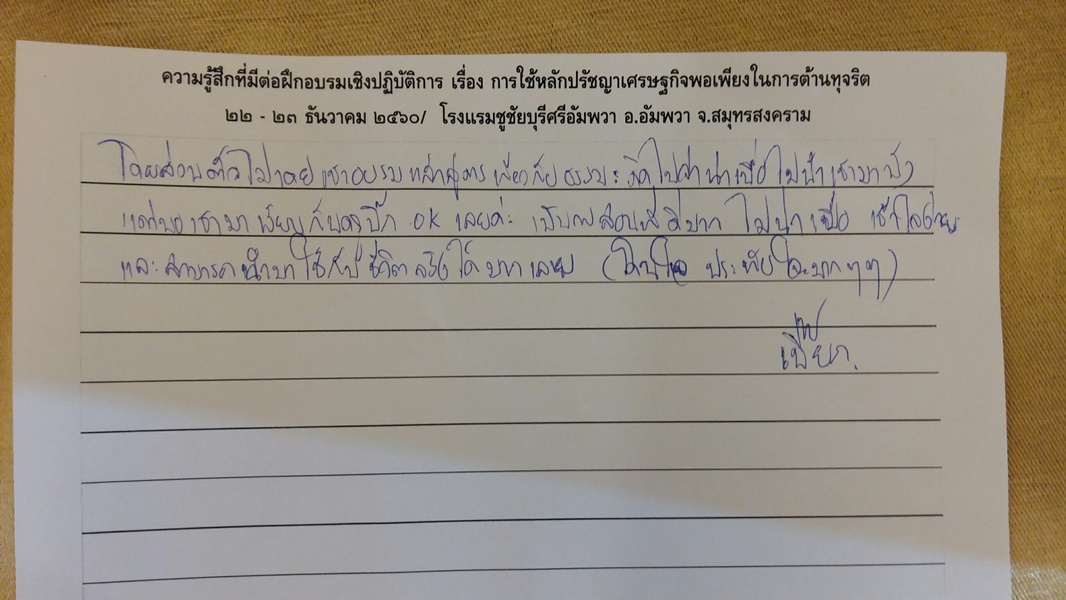 ความรู้สึกที่มีต่อฝึกอบรมเชิงปฏิบัติการ เรื่อง การใช้หลักปรัชญาเศรษฐกิจพอเพียงในการต้านทุจริต
๒๒ - ๒๓ ธันวาคม ๒๕๖๐/ โรงแรมชูชัยบุรีศรีอัมพวา อ.อัมพวา จ.สมุทรสงคราม
โดยส่วนตัวไม่เคยเข้าอบรมหลักสูตรเกี่ยวกับธรรมะ คิดไปว่าน่าเบื่อ ไม่น่าเข้ามาฟัง
แต่พอเข้ามาเรียนกับ OK เลยค่ะ สอนดีมาก ไม่น่าเบื่อ เข้าใจง่าย
และสามารถนำมาใช้กับชีวิตจริงได้มากเลย (โดนใจ ประทับใจมากๆๆ)